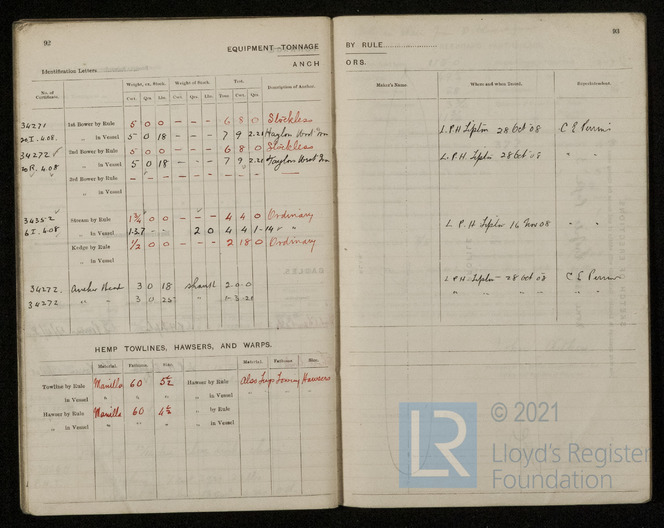 92
EQUIPMENT TONNAGE
ANCH
Identification Letters
No. of Certificate. Weight, ex. Stock. Weight of Stock. Test. Description of Anchor.
Cwt. Qrs. Lbs. Cwt. Qrs. Lbs. Tons. Cwt. Qrs.
34271 1st Bower by Rule 5 0 0 - - - 6 8 0 Stockless
„ in Vessel 5 0 18 - - - 7 9 2.21
34272 2nd Bower by Rule 5 0 0 - - - 6 8 0 Stockless
„ in Vessel 5 0 18 - - - 7 9 2.21
3rd Bower by Rule
„ in Vessel
34352 Stream by Rule 1¾ 0 0 - - - 4 4 0 Ordinary
„ in Vessel 1-3-7 2 0 4 4 1-14 „ „
Kedge by Rule ½ 0 0 - - - 2 18 0 Ordinary
„ in Vessel
34272 Anchor Head 3 0 18 Shank 2-0-0
34272 „ „ 3 0 25 1-3-21
HEMP TOWLINES, HAWSERS, AND WARPS.
Material. Fathoms. Size. Material. Fathoms. Size.
Towline by Rule Manilla 60 5½ Hawser by Rule Also Two Towing Hawsers
„ in Vessel „ „ „ „ in Vessel
Hawser by Rule Manilla 60 4½ „ by Rule
„ in Vessel „ in Vessel
93
BY RULE
ORS.
Maker's Name. Where and when Tested. Superintendent.
L.P.H Tipton 28 Oct '08 C E Perrin
L.P.H Tipton 28 Oct '08 „ „
L.P.H Tipton 14 Nov 08 „ „
L.P.H Tipton 28 Oct 08 C E Perrin
„ „ „ „ „ „
LR
© 2021
Lloyd's Register
Foundation